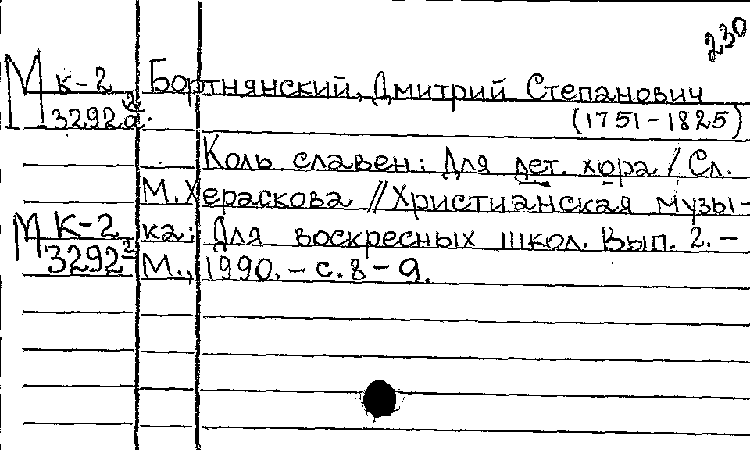 230
М к-2 Бортнянский, Дмитрий Степанович
3292а. (1751-1825)
Коль славен: Для дет. хора / Сл.
М. Хераскова // Христианская музы-
М К-2 ка: Для воскресных школ. Вып. 2. -
3292 М., 1990. - с. 8 - 9.